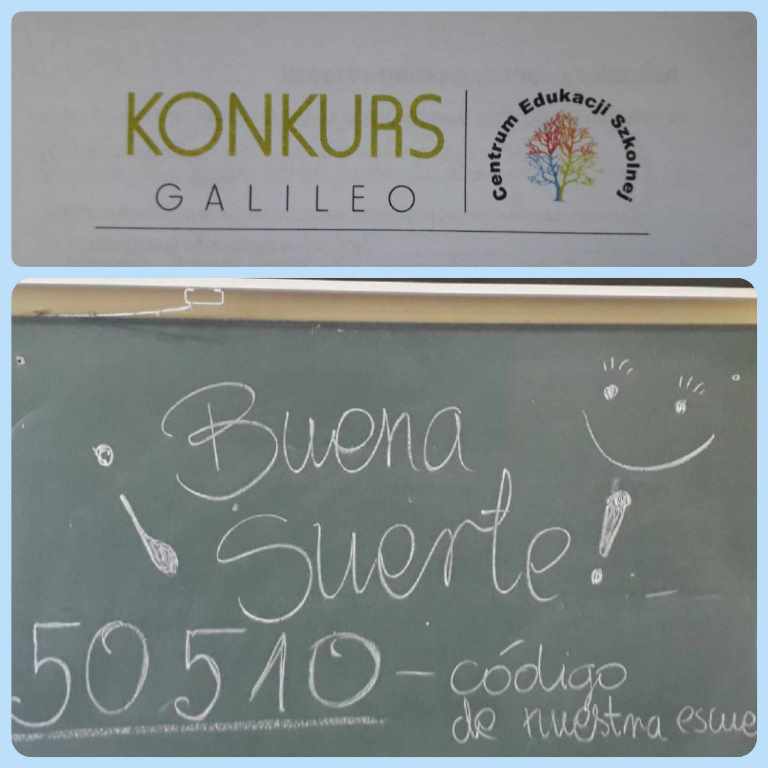 KONKURS
GALILEO
Centrum Edukacji Szkolnej
¡Buena
Suerte!
50510 – código
de nuestra escue